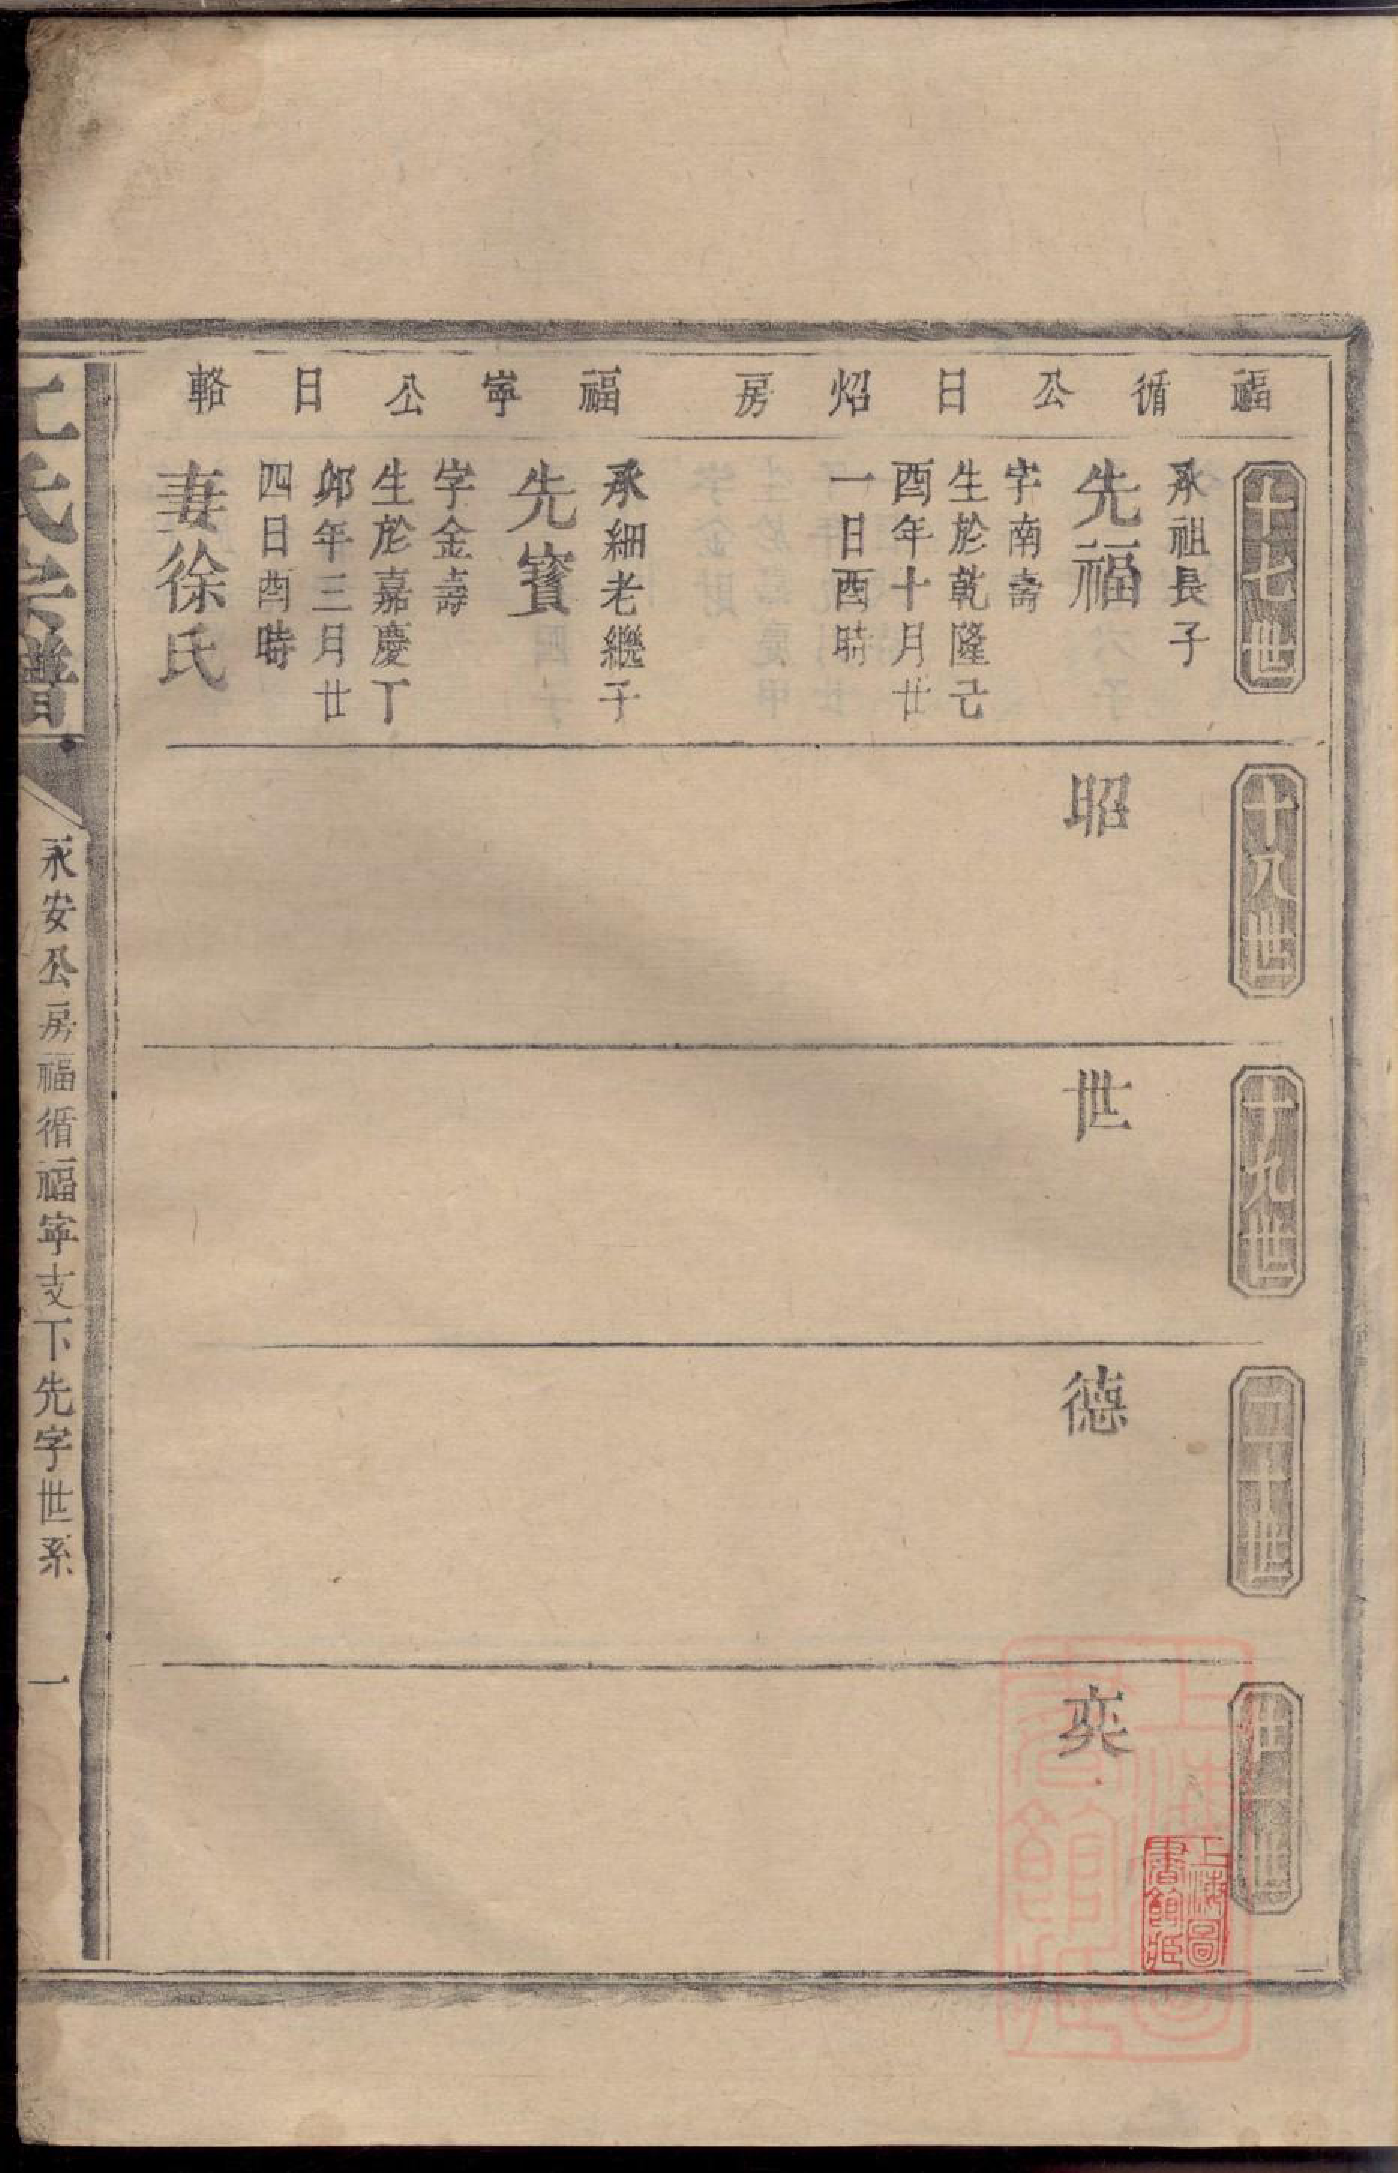 福循公日炤房
福寧公日輅
十七世
承祖長子
先福
字南壽
生於乾隆己
酉年十月廿
一日酉時
承細老繼子
先賓
字金壽
生於嘉慶丁
夘年三月廿
四日酉時
妻徐氏
十八世
昭
十九世
世
二十世
德
廿一世
奕
上海圖
書館藏
氏宗譜
永安公房福循福寧支下先字世系
一